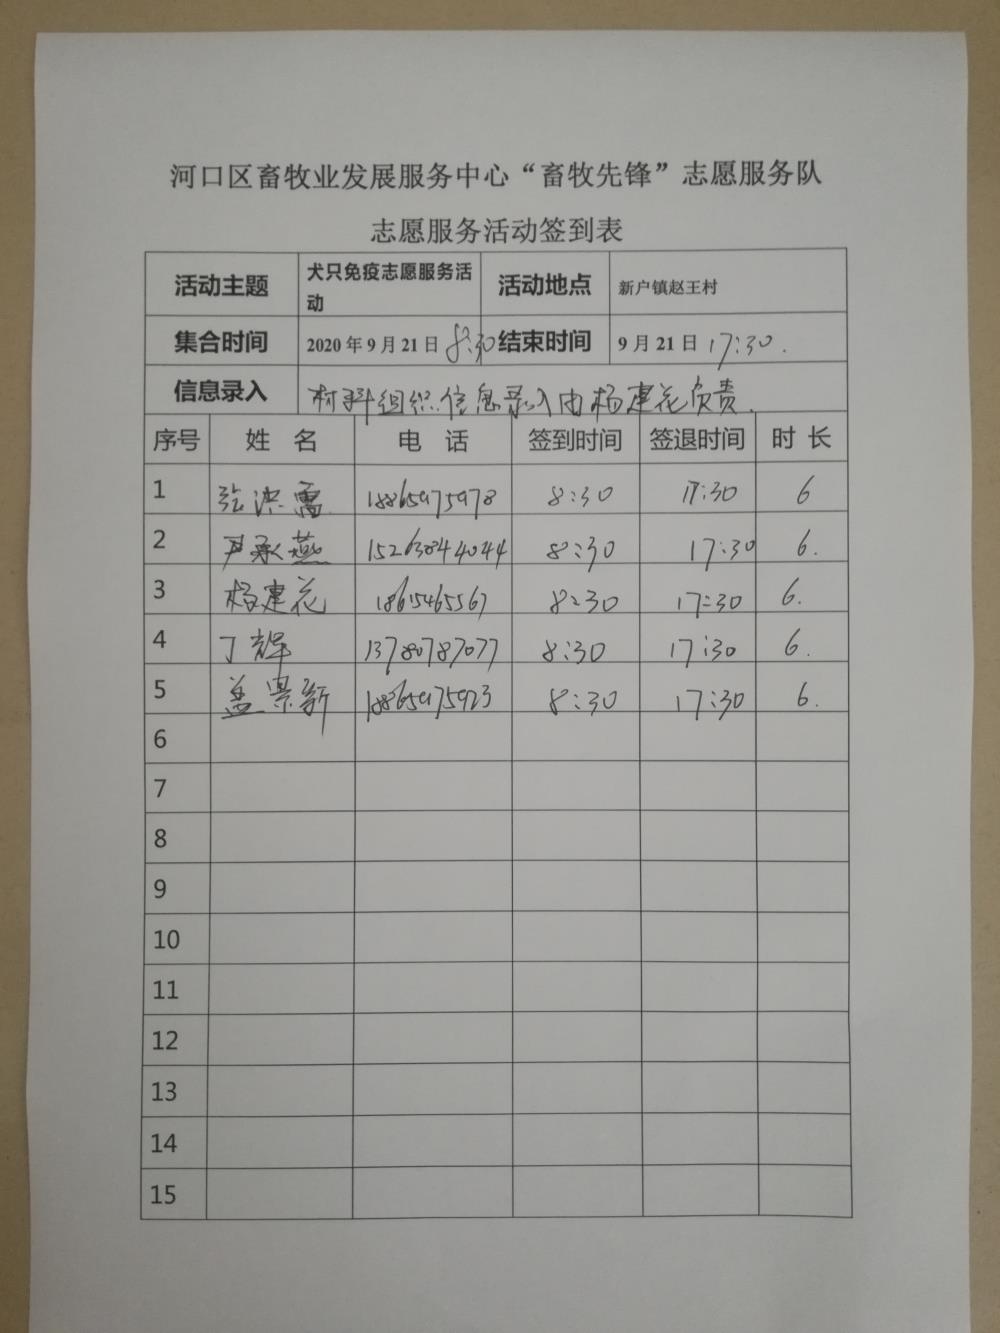 河口区畜牧业发展服务中心“畜牧先锋”志愿服务队
志愿服务活动签到表
活动主题 犬只免疫志愿服务活动 活动地点 新户镇赵王村
集合时间 2020年9月21日 8:30 结束时间 9月21日 17:30.
信息录入 材料组织信息录入由杨建花负责.
序号 姓 名 电 话 签到时间 签退时间 时 长
1 张洪雷 18865975978 8:30 17:30 6
2 尹承燕 15263844044 8:30 17:30 6.
3 杨建花 8:30 17:30 6.
4 丁辉 13780787077 8:30 17:30 6.
5 盖景新 18865975923 8:30 17:30 6.
6
7
8
9
10
11
12
13
14
15